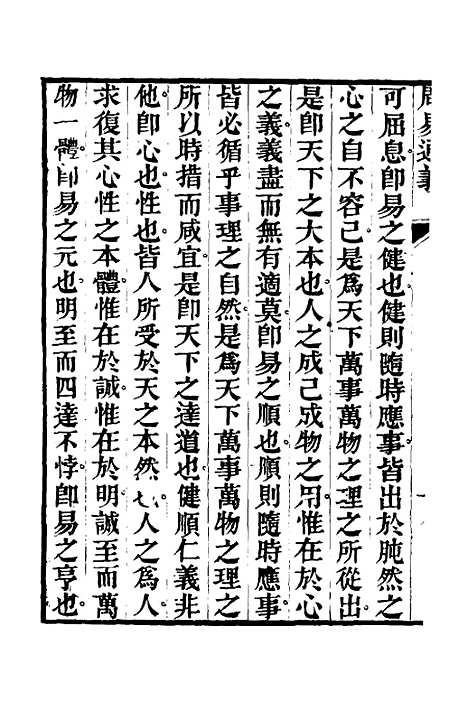 周易通義
可屈息卽易之健也健則隨時應事皆出於肫然之
心之自不容已是爲天下萬事萬物之理之所從出
是卽天下之大本也人之成己成物之用惟在於心
之義義盡而無有適莫卽易之順也順則隨時應事
皆必循乎事理之自然是爲天下萬事萬物之理之
所以時措而咸宜是卽天下之達道也健順仁義非
他卽心也性也皆人所受於天之本然也人之爲人
求復其心性之本體惟在於誠惟在於明誠至而萬
物一體卽易之元也明至而四達不悖卽易之亨也